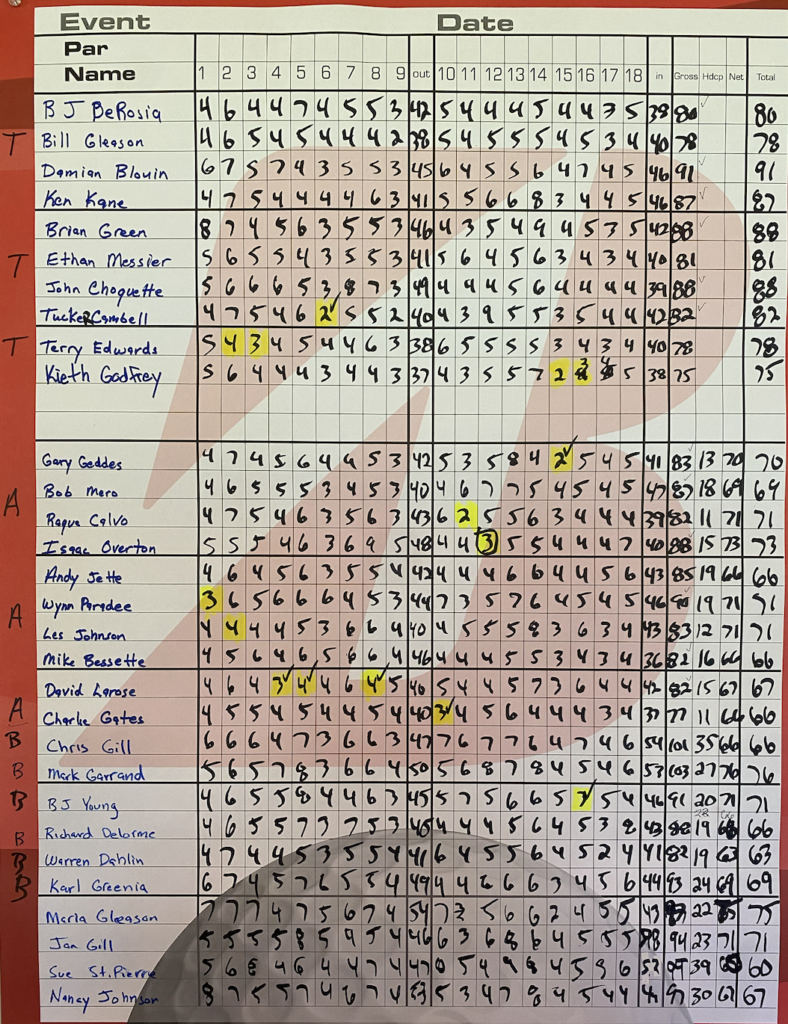 Event Date
Par
Name 1 2 3 4 5 6 7 8 9 out 10 11 12 13 14 15 16 17 18 in Gross Hdcp Net Total
B J BeRosia 4 6 4 4 7 4 5 5 3 42 5 4 4 4 5 4 4 3 5 38 80 80
T Bill Gleason 4 6 5 4 5 4 4 4 2 38 5 4 5 5 5 4 5 3 4 40 78 78
Damian Blouin 6 7 5 7 4 3 5 5 3 45 6 4 5 5 6 4 7 4 5 46 91 91
Ken Kane 4 7 5 4 4 4 4 6 3 41 5 5 6 6 8 3 4 4 5 46 87 87
Brian Green 8 7 4 5 6 3 5 5 3 46 4 3 5 4 9 4 5 3 5 42 88 88
T Ethan Messier 5 6 5 5 4 3 5 5 3 41 5 6 4 5 6 3 4 3 4 40 81 81
John Choquette 5 6 6 6 5 3 8 7 3 49 4 4 4 5 6 4 4 4 4 39 88 88
Tucker Cambell 4 7 5 4 6 2 5 5 2 40 4 3 9 5 5 3 5 4 4 42 82 82
T Terry Edwards 5 4 3 4 5 4 4 6 3 38 6 5 5 5 5 3 4 3 4 40 78 78
Kieth Godfrey 5 6 4 4 4 3 4 4 3 37 4 3 5 5 7 2 3 4 5 38 75 75
Gary Geddes 4 7 4 5 6 4 4 5 3 42 5 3 5 8 4 2 5 4 5 41 83 13 70 70
Bob Mero 4 6 5 5 5 3 4 5 3 40 4 6 7 7 5 4 5 4 5 47 87 18 69 69
A Raque Calvo 4 7 5 4 6 3 5 6 3 43 6 2 5 5 6 3 4 4 4 39 82 11 71 71
Isaac Overton 5 5 5 4 6 3 6 9 5 48 4 4 3 5 5 4 4 4 7 40 88 15 73 73
Andy Jette 4 6 4 5 6 3 5 5 4 42 4 4 4 6 6 4 4 5 6 43 85 19 66 66
A Wynn Paradee 3 6 5 6 6 6 4 5 3 44 7 3 5 7 6 4 5 4 5 46 90 19 71 71
Les Johnson 4 4 4 4 5 3 6 6 4 40 4 5 5 5 8 3 6 3 4 43 83 12 71 71
Mike Bessette 4 5 6 4 6 5 6 6 4 46 4 4 4 5 5 3 4 3 4 36 82 16 66 66
David Larose 4 6 4 3 4 4 6 4 5 40 5 4 4 5 7 3 6 4 4 42 82 15 67 67
A Charlie Gates 4 5 5 4 5 4 4 5 4 40 3 4 5 6 4 4 4 3 4 37 77 11 66 66
B Chris Gill 6 6 6 4 7 3 6 6 3 47 7 6 7 7 6 4 7 4 6 54 101 35 66 66
B Mark Garrand 5 6 5 7 8 3 6 6 4 50 5 6 8 7 8 4 5 4 6 53 103 27 76 76
B BJ Young 4 6 5 5 8 4 4 6 3 45 5 7 5 6 6 5 3 5 4 46 91 20 71 71
B Richard Delorme 4 6 5 5 7 3 7 5 3 45 4 4 4 5 6 4 5 3 8 43 88 19 66
B Warren Dahlin 4 7 4 4 5 3 5 5 4 41 6 4 5 5 6 4 5 2 4 41 82 19 63 63
B Karl Greenia 6 7 4 5 7 6 5 5 4 49 4 4 6 6 6 3 4 5 6 44 93 24 69 69
Marla Gleason 7 7 7 4 7 5 6 7 4 54 7 3 5 6 6 2 4 5 5 43 97 22 75 75
Jan Gill 5 5 5 5 8 5 9 5 4 46 6 3 6 8 6 4 5 5 5 48 94 23 71 71
Sue St.Pierre 5 6 8 4 6 4 4 7 4 47 39 60
Nancy Johnson 8 7 5 5 7 4 6 7 4 53 5 3 4 7 8 4 5 4 4 97 30 67 67